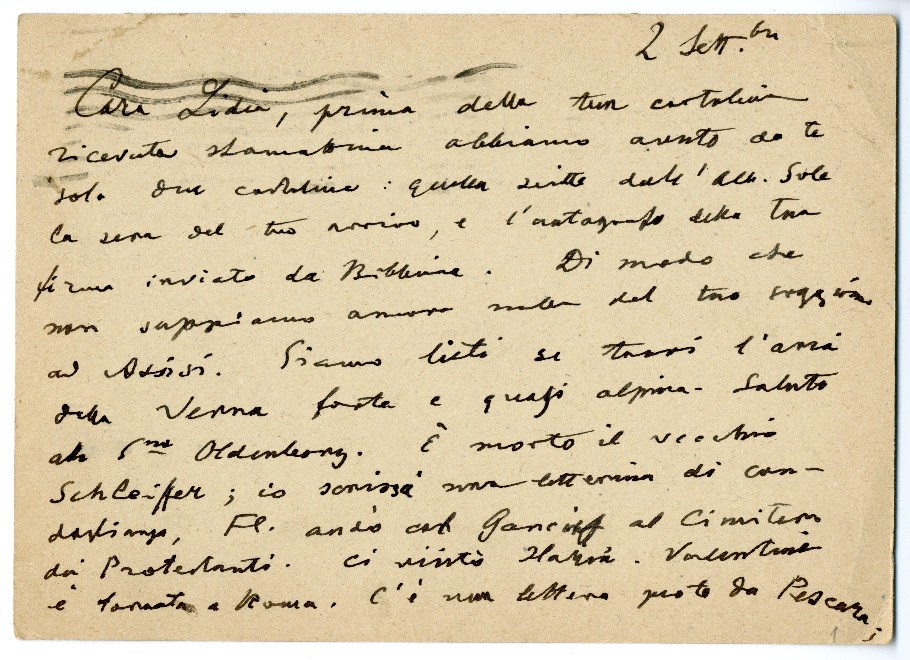 2 Sett.bre
Cara Lidia, prima della tua cartolina
ricevuta stamattina abbiamo avuto da te
solo due cartoline: quella scritta dall'Alb. Sole
la sera del tuo arrivo, e l'autografo della tua
firma inviato da Bibbiena. Di modo che
non sappiamo ancora nulla del tuo soggiorno
ad Assisi. Siamo lieti se trovi l'aria
della Verna forte e quasi alpina. Saluto
la S.na Oldenbourg. È morto il vecchio
Schleiffer; io scrissi una letterina di con-
doglianze, Fl. andò col al Cimitero
dei Protestanti. Ci visitò Ilaria. Valentina
è tornata a Roma. C'è una lettera per te da Pescara;